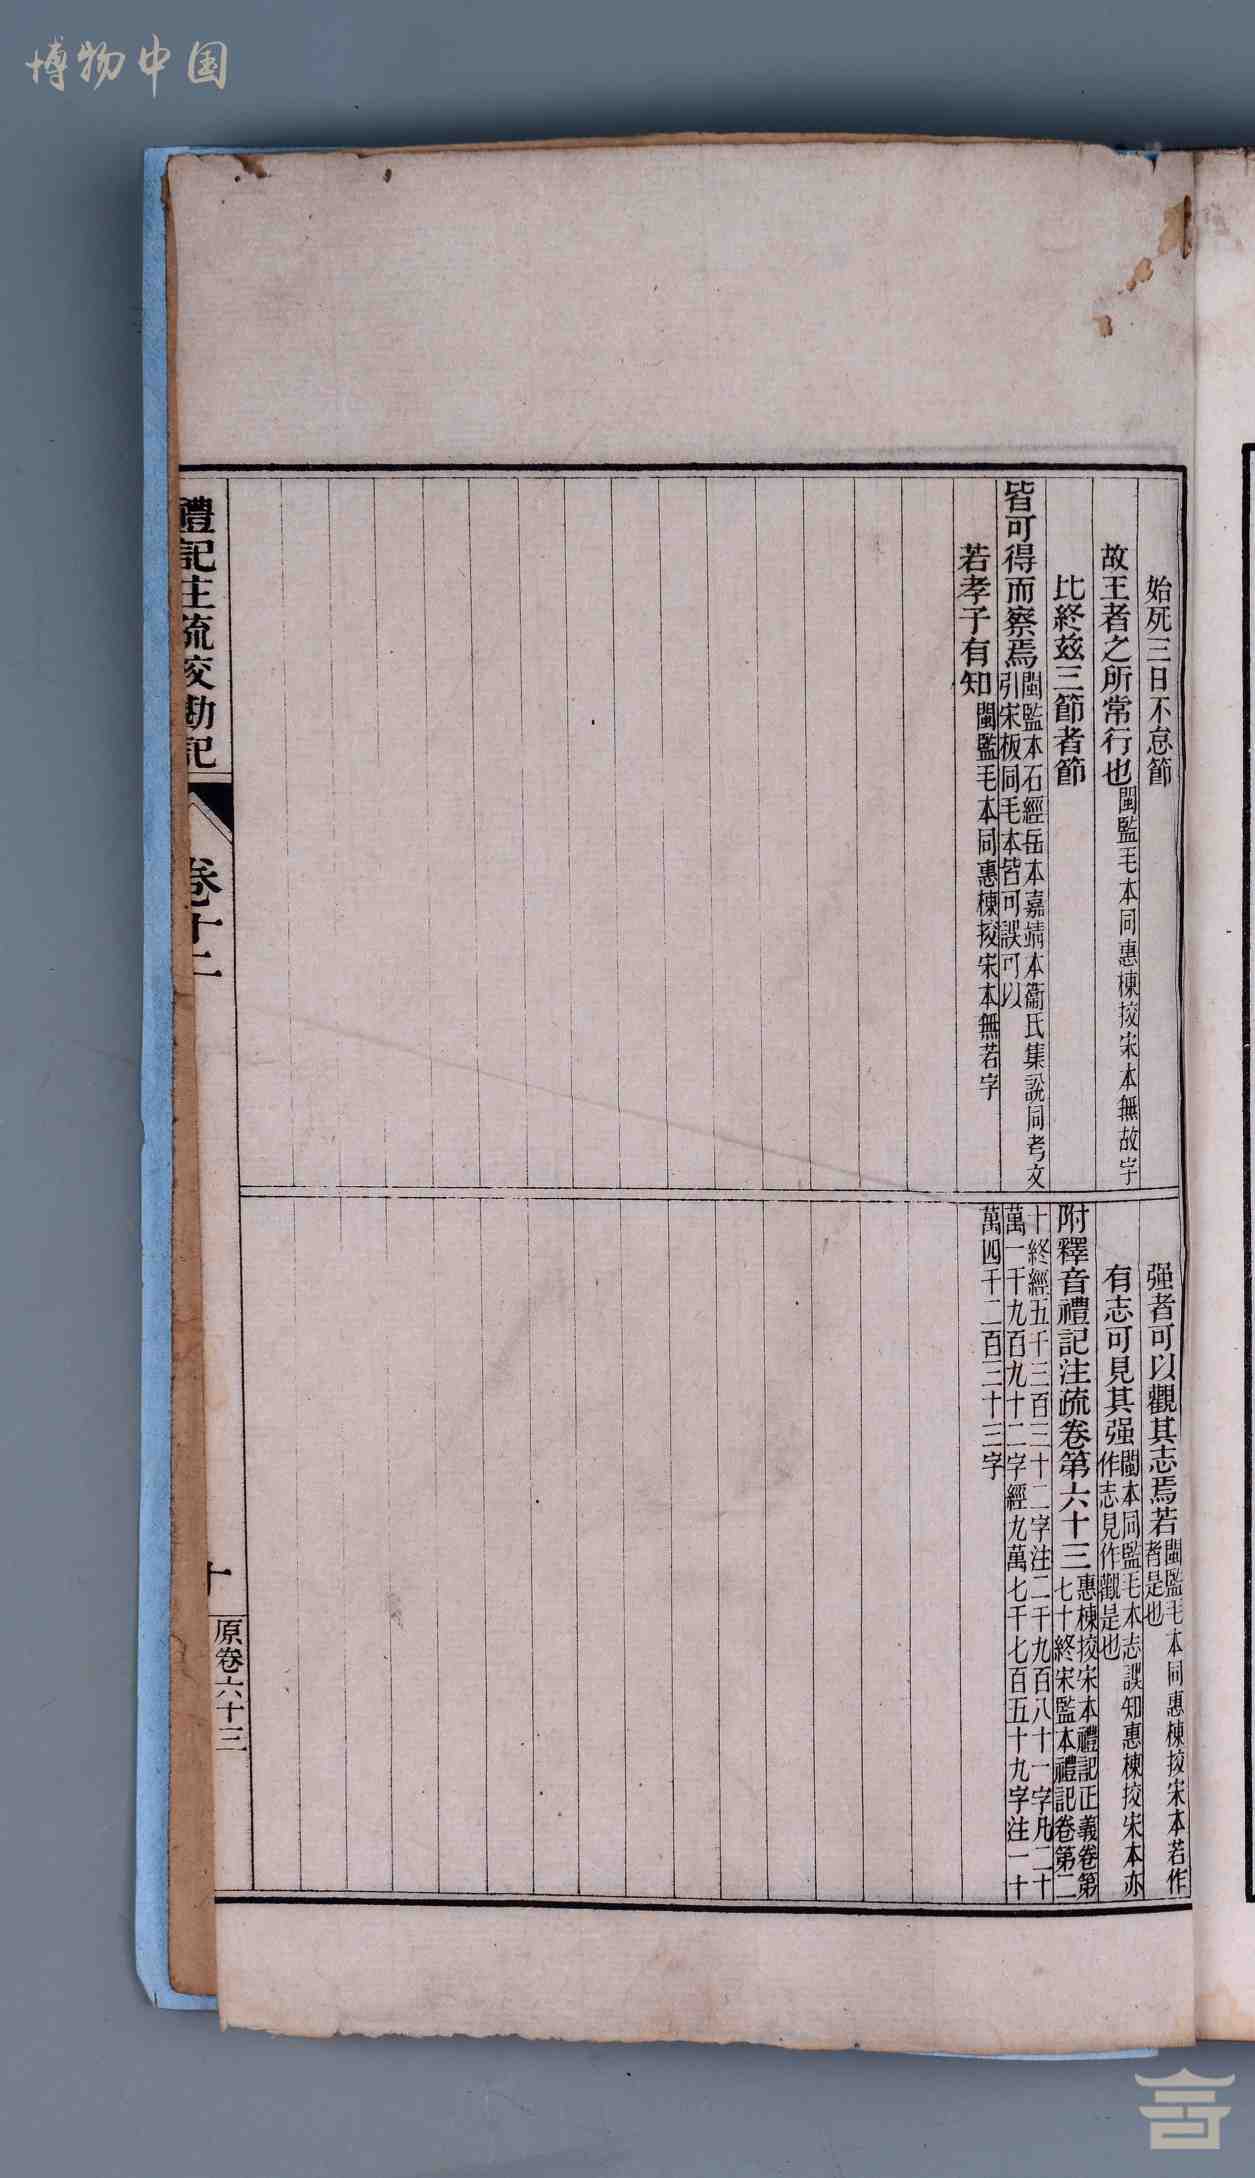 博物中国
始死三日不怠節
故王者之所常行也閩監毛本同惠棟挍宋本無故字
比終茲三節者節
皆可得而察焉閩監本石經岳本嘉靖本衞氏集說同考文
引宋板同毛本皆可誤可以
若孝子有知閩監毛本同惠棟挍宋本無若字
强者可以觀其志焉若閩監毛本同惠棟挍宋本若作
者是也
有志可見其强閩本同監毛本志誤知惠棟挍宋本亦
作志見作觀是也
附釋音禮記注疏卷第六十三惠棟挍宋本禮記正義卷第
七十終宋監本禮記卷第二
十終經五千三百三十二字注二千九百八十一字凡二十
萬一千九百九十二字經九萬七千七百五十九字注一十
萬四千二百三十三字
禮記注疏挍勘記
卷十二
十
原卷六十三